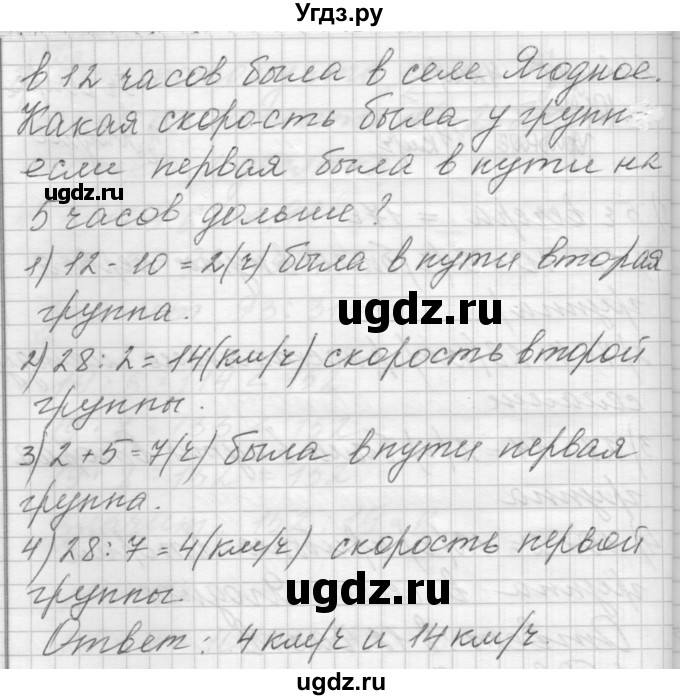 Угдз.ру
в 12 часов была в селе Ягодное.
Какая скорость была у групп
если первая была в пути на
ugdz.ru
5 часов дольше?
1) 12 - 10 = 2(ч) была в пути вторая
группа.
ugdz.ru
2) 28 : 2 = 14(км/ч) скорость второй
группы.
3) 2 + 5 = 7(ч) была в пути первая
группа.
4) 28 : 7 = 4(км/ч) скорость первой
группы.
ugdz.ru
Ответ: 4 км/ч и 14 км/ч.
ugdz.ru